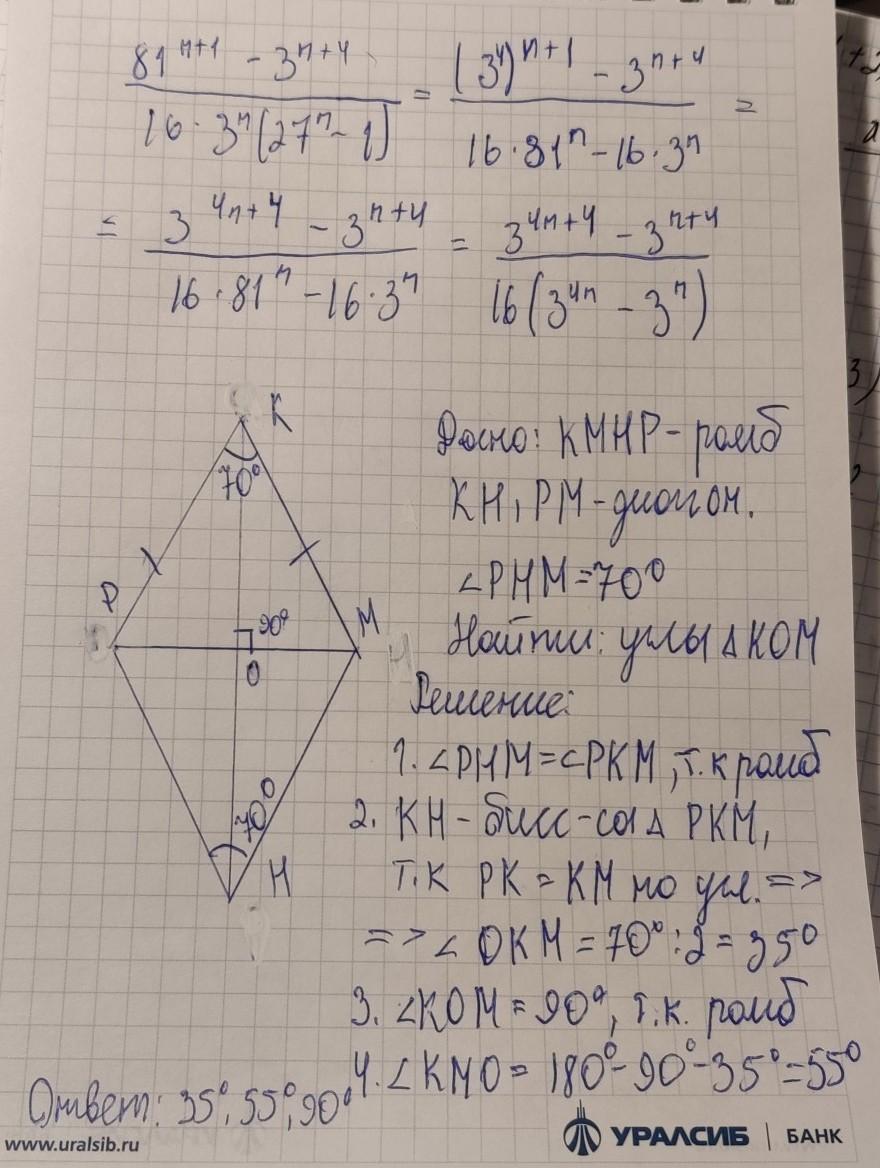 81^{n+1} - 3^{n+4} / 16 · 3^n (27^n - 1) = (3^4)^{n+1} - 3^{n+4} / 16 · 81^n - 16 · 3^n =
= 3^{4n+4} - 3^{n+4} / 16 · 81^n - 16 · 3^n = 3^{4n+4} - 3^{n+4} / 16 (3^{4n} - 3^n)
K
70°
P
90°
M
O
70°
H
Дано: KMHP - ромб
KH, PM - диагон.
∠PHM = 70°
Найти: углы ΔKOM
Решение:
1. ∠PHM = ∠PKM, т.к ромб
2. KH - бисс-са Δ PKM,
т.к PK = KM по усл. =>
=> ∠OKM = 70° : 2 = 35°
3. ∠KOM = 90°, т.к. ромб
4. ∠KMO = 180° - 90° - 35° = 55°
Ответ: 35°, 55°, 90°
www.uralsib.ru
УРАЛСИБ | БАНК